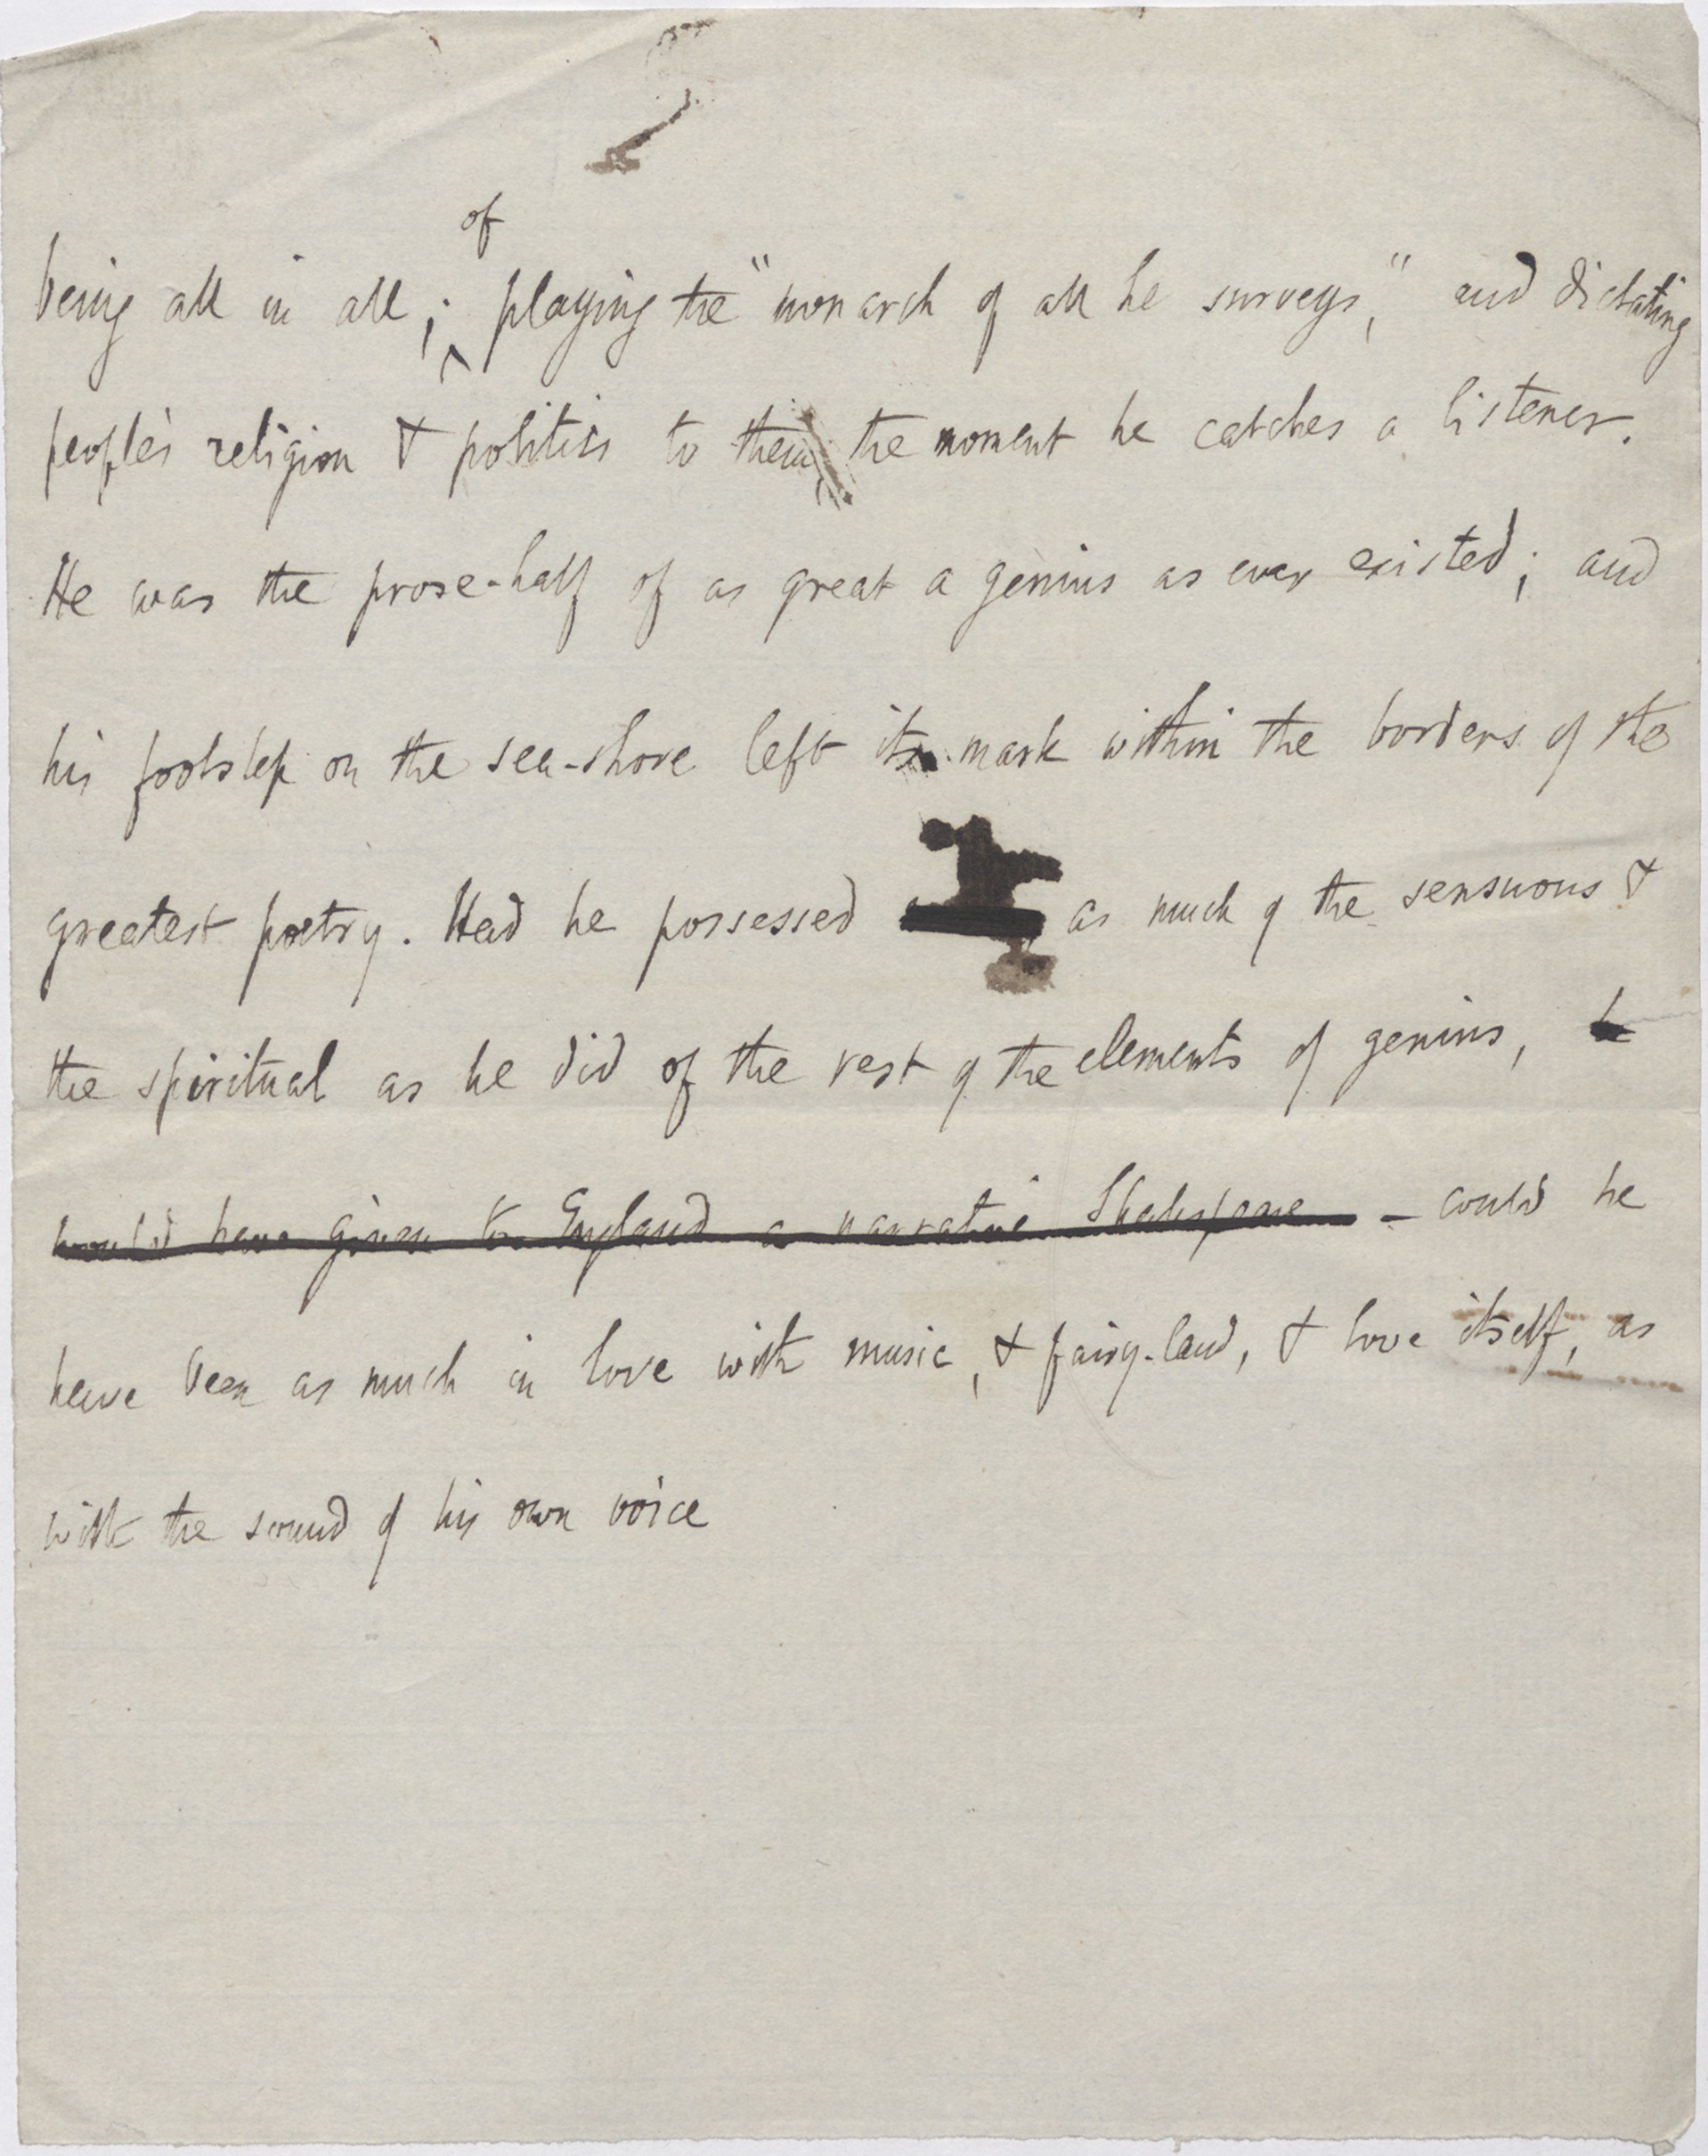 of
being all in all; playing the "monarch of all he surveys," and dictating
people's religion & politics to them the moment he catches a listener.
He was the prose-half of as great a genius as ever existed; and
his footstep on the sea-shore left its mark within the borders of the
greatest poetry. Had he possessed as much of the sensuous &
the spiritual as he did of the rest of the elements of genius,
would have given to England a narrative Shakspeare - could he
have been as much in love with music, & fairy-land, & love itself, as
with the sound of his own voice